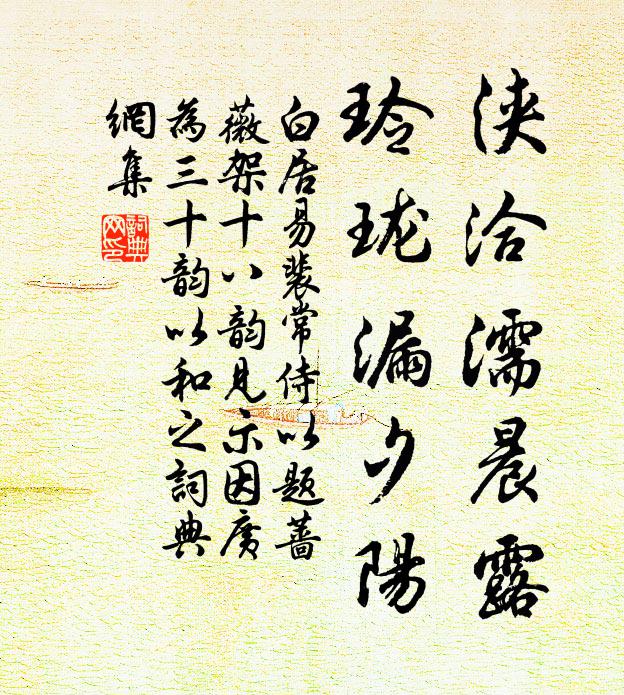 浹洽濡晨露
玲瓏漏夕陽
白居易裴常侍以題薔
薇架十八韵見示因廣
為三十韵以和之詞典
網集
詞典
网印